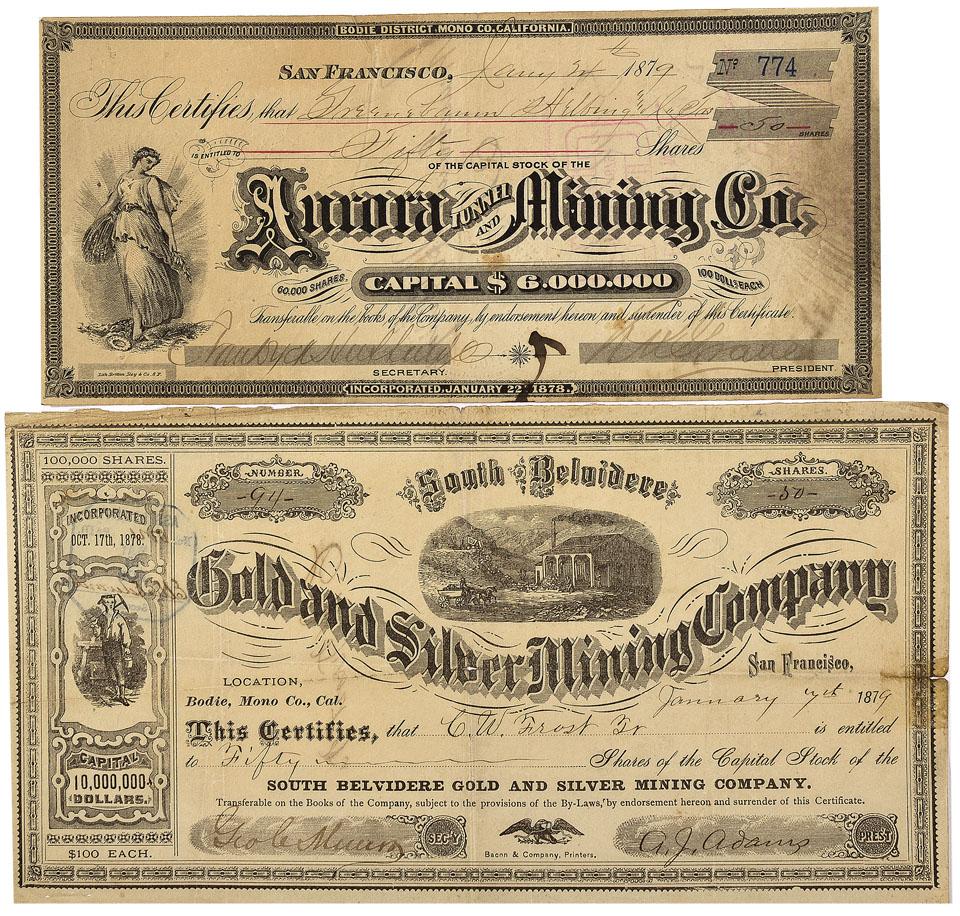 BODIE DISTRICT. MONO CO. CALIFORNIA.
SAN FRANCISCO, 1879
No 774
This Certifies, that
50 SHARES
IS ENTITLED TO Fifty Shares
OF THE CAPITAL STOCK OF THE
Aurora TUNNEL AND Mining Co.
60.000 SHARES. CAPITAL $ 6.000.000 100 DOLLS EACH
Transferable on the Books of the Company, by endorsement hereon and surrender of this Certificate.
SECRETARY. PRESIDENT.
INCORPORATED. JANUARY 22 1878.
100,000 SHARES.
INCORPORATED
OCT. 17th, 1878.
CAPITAL
10,000,000
DOLLARS.
$100 EACH.
NUMBER. SHARES.
-94- -50-
South Belvidere
Gold and Silver Mining Company
San Francisco,
LOCATION,
Bodie, Mono Co., Cal. January 7th 1879
This Certifies, that C. W. Frost Tr is entitled
to Fifty Shares of the Capital Stock of the
SOUTH BELVIDERE GOLD AND SILVER MINING COMPANY.
Transferable on the Books of the Company, subject to the provisions of the By-Laws, by endorsement hereon and surrender of this Certificate.
Geo C SEC'Y A. J. Adams PREST
Bacon & Company, Printers.